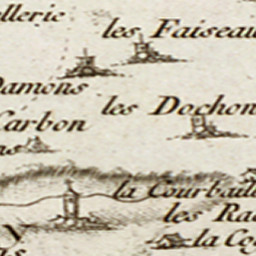 ellerie
les Faiseau
Damons
les Dochon
Carbon
ns
la Courbaill
les Ra
la Co